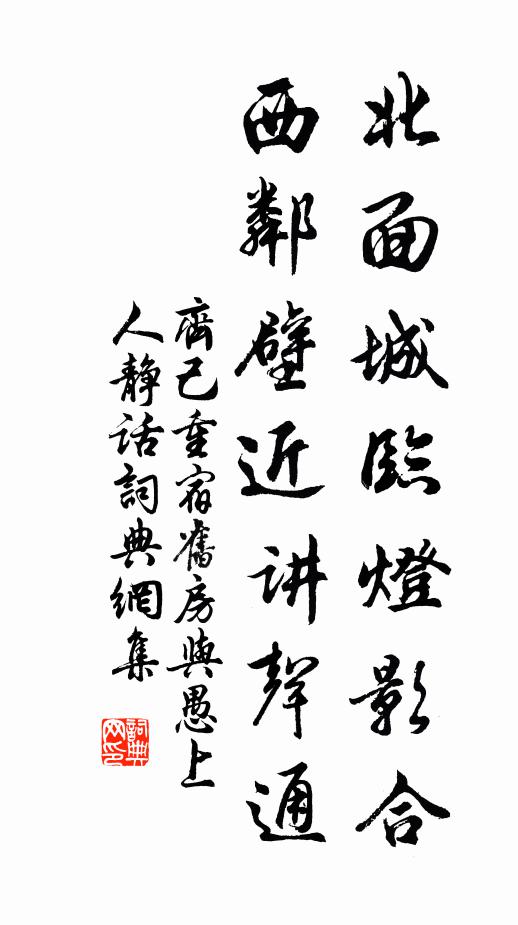 北面城臨燈影合
西鄰壁近讲聲通
齊己重宿舊房與愚上
人靜話詞典網集
詞典
网印